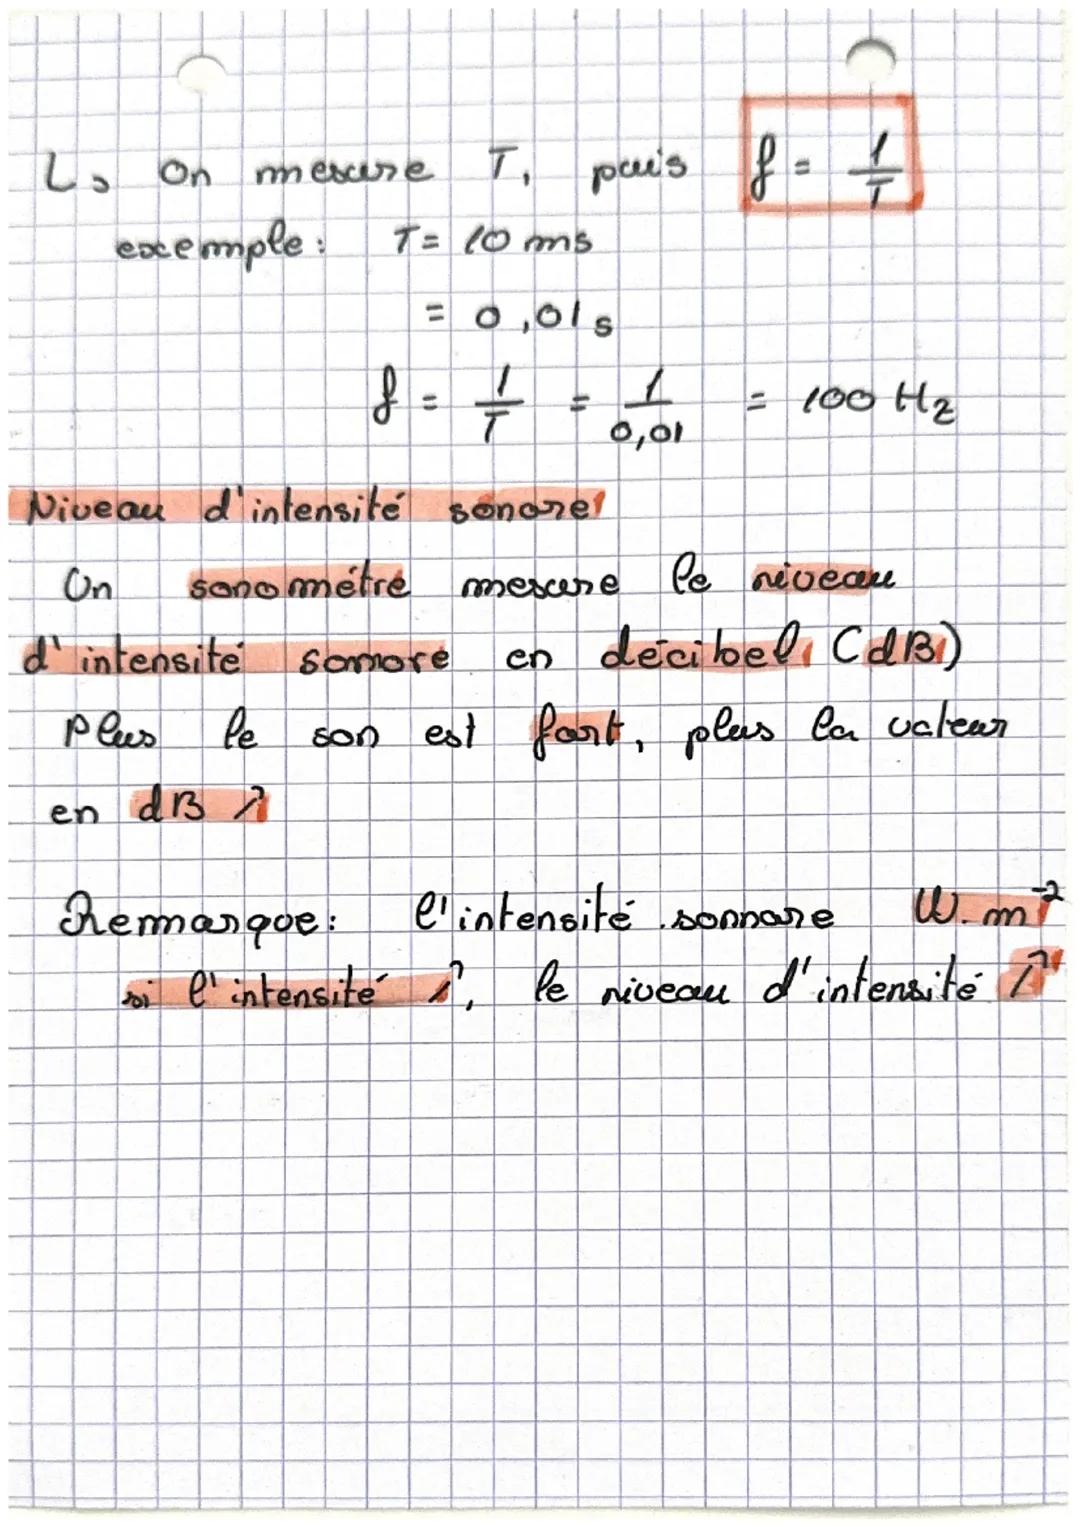 ↳ On mesure T, puis f = 1/T
exemple : T = 10 ms
= 0,01 s
f = 1/T = 1/0,01 = 100 Hz
Niveau d'intensité sonore
Un sonométre mesure le niveau
d'intensité sonore en décibel (dB)
Plus le son est fort, plus la valeur
en dB ↗
Remarque : l'intensité sonnore W.m⁻²
si l'intensité ↗, le niveau d'intensité ↗